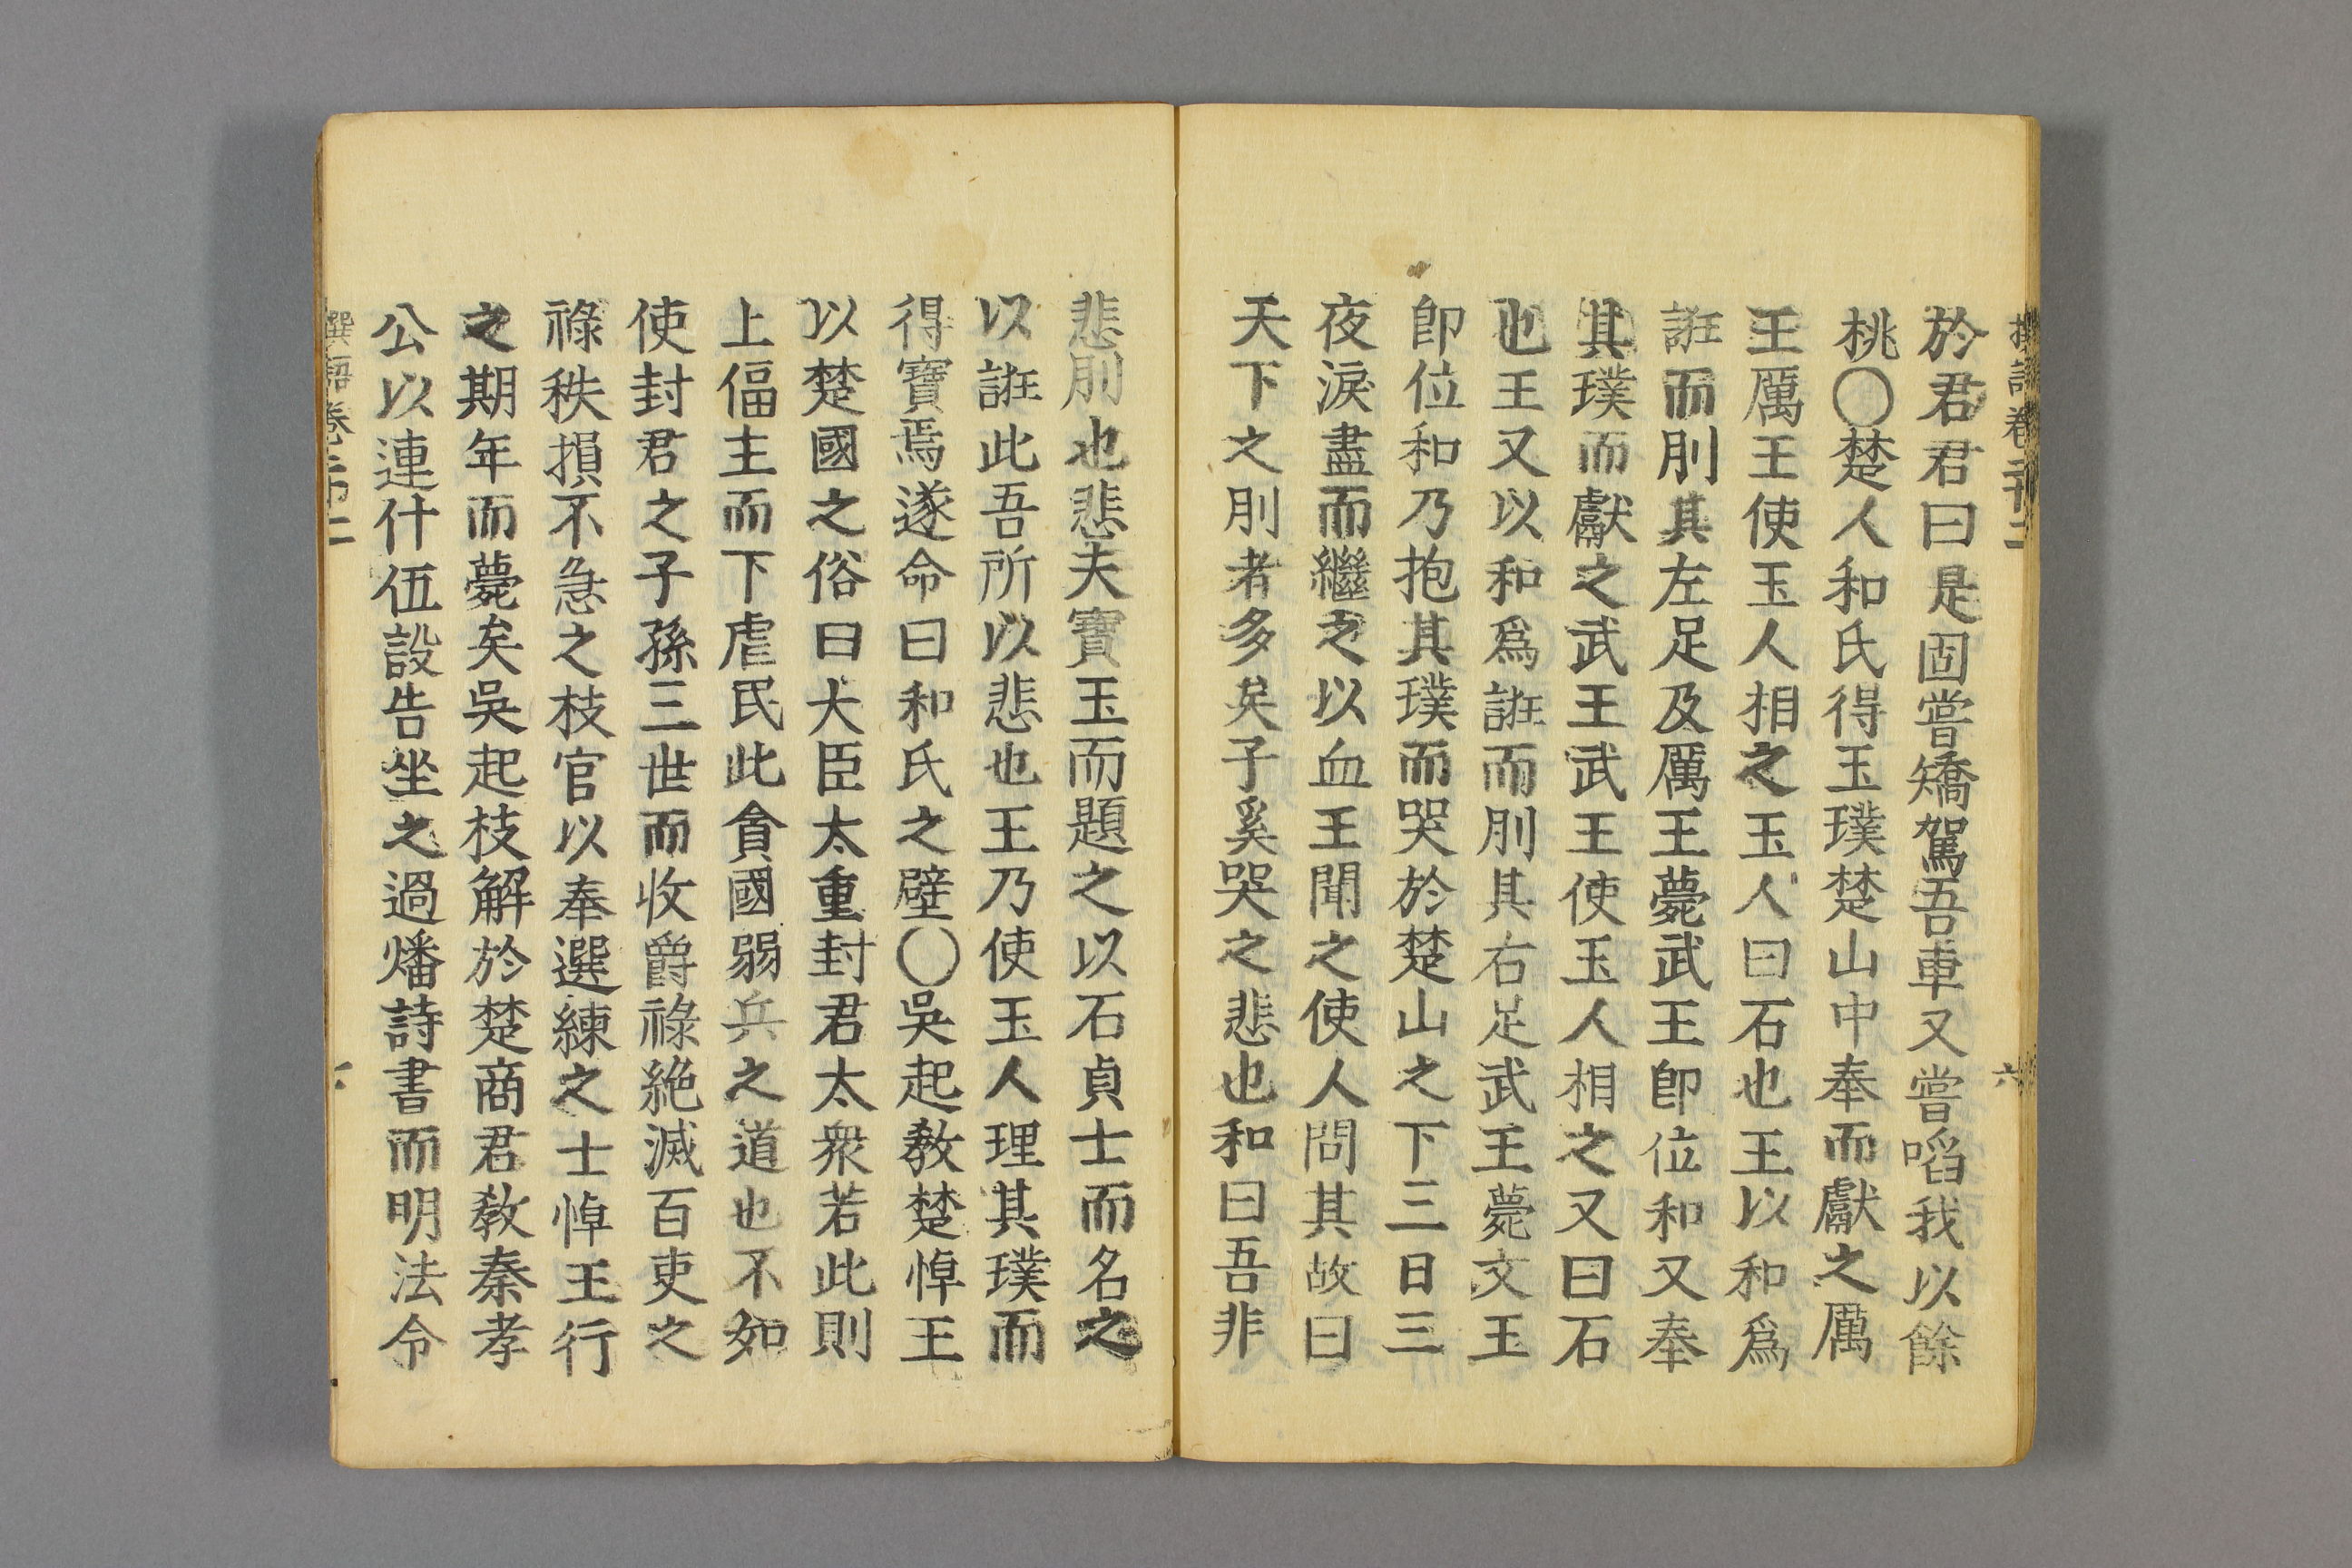 於君君曰是固嘗矯駕吾車又嘗啗我以餘
桃〇楚人和氏得玉璞楚山中奉而獻之厲
王厲王使玉人相之玉人曰石也王以和爲
誑而刖其左足及厲王薨武王即位和又奉
其璞而獻之武王武王使玉人相之又曰石
也王又以和爲誑而刖其右足武王薨文王
即位和乃抱其璞而哭於楚山之下三日三
夜淚盡而繼之以血王聞之使人問其故曰
天下之刖者多矣子奚哭之悲也和曰吾非
悲刖也悲夫寶玉而題之以石貞士而名之
以誑此吾所以悲也王乃使玉人理其璞而
得寶焉遂命曰和氏之璧〇吳起敎楚悼王
以楚國之俗曰大臣太重封君太衆若此則
上偪主而下虐民此貪國弱兵之道也不如
使封君之子孫三世而收爵祿絶滅百吏之
祿秩損不急之枝官以奉選練之士悼王行
之期年而薨矣吳起枝解於楚商君敎秦孝
公以連什伍設告坐之過燔詩書而明法令